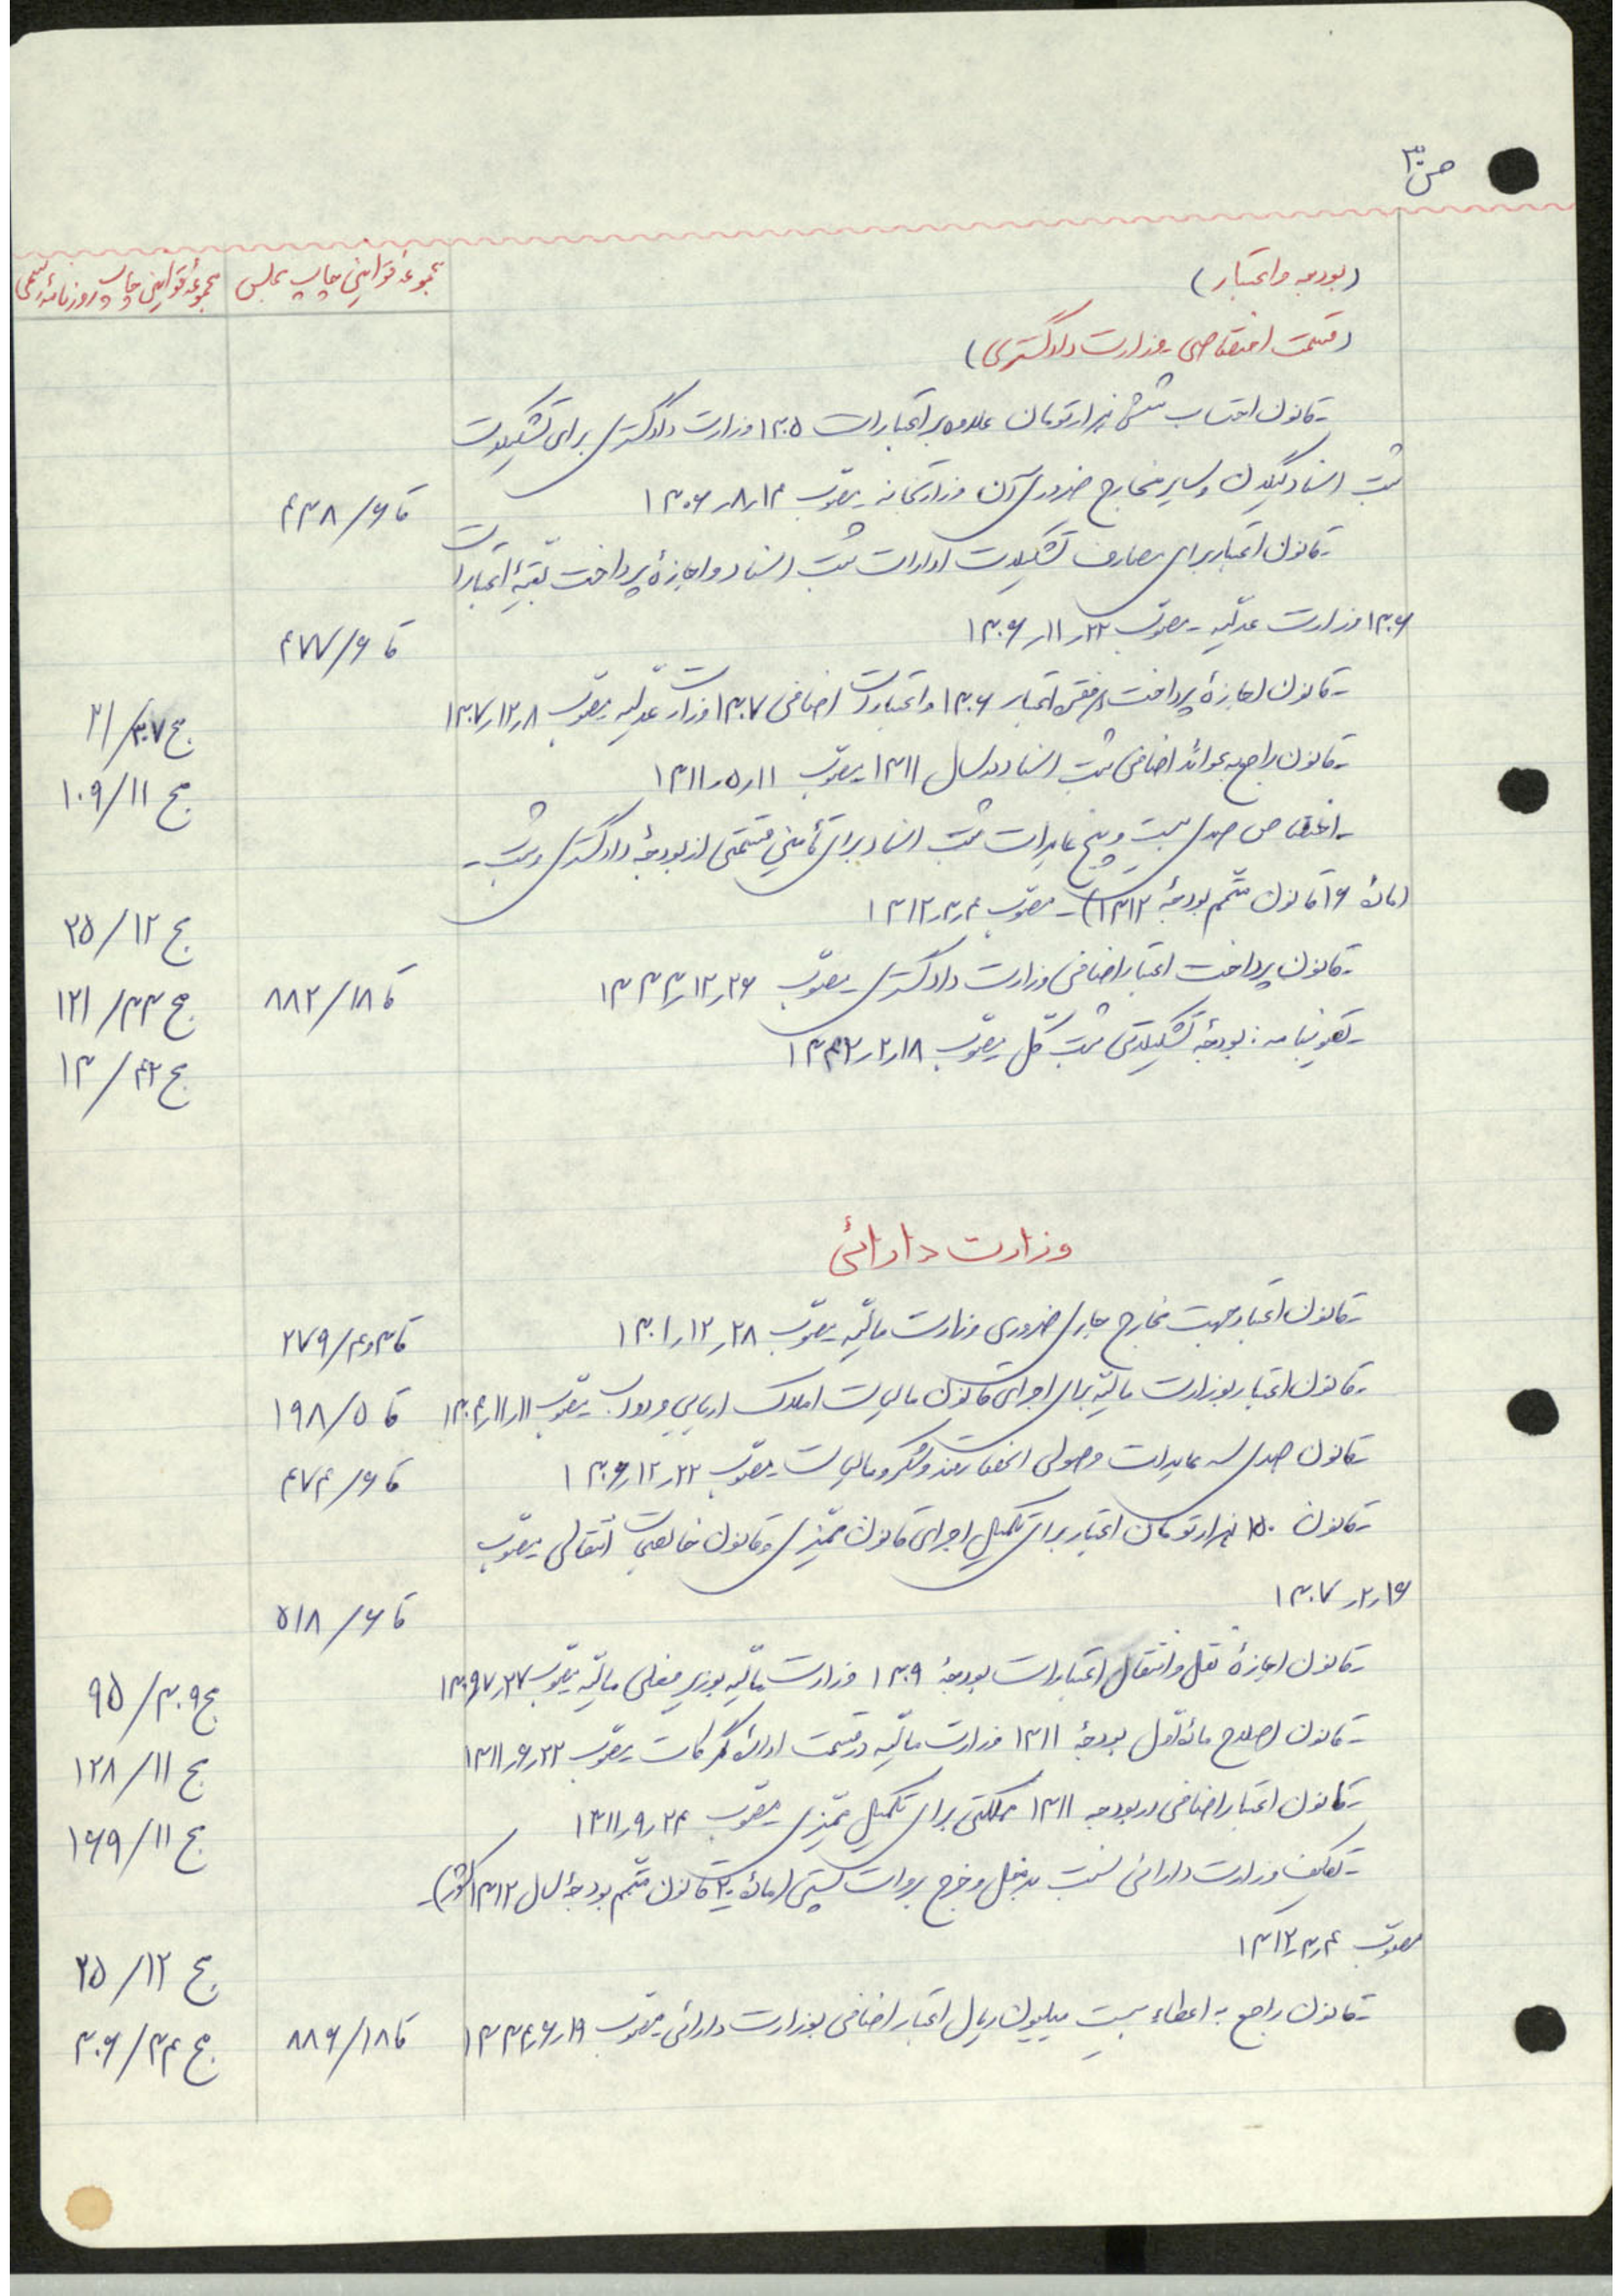 ص ۳۰
مجموعهٔ قوانین چاپ مجلس
مجموعهٔ قوانین چاپ روزنامهٔ رسمی
(بودجه و اعتبار)
(قسمت اختصاصی ـ وزارت دادگستری)
ـ قانون احتساب شش هزار تومان علاوه بر اعتبارات ۱۳۰۵ وزارت دادگستری برای تشکیلات
ثبت اسناد گیلان و سایر مخارج ضروری آن وزارتخانه ـ مصوّب ۱۴ر۸ر۱۳۰۶ قا ۶/۴۳۸
ـ قانون اعتبار برای مصارف تشکیلات ادارات ثبت اسناد و اجازهٔ پرداخت بقیهٔ اعتبارات
۱۳۰۶ وزارت عدلیّه ـ مصوّب ۲۲ر۱۱ر۱۳۰۶ قا ۶/۴۷۷
ـ قانون اجازهٔ پرداخت فقره اعتبار ۱۳۰۶ و اعتبارات اضافی ۱۳۰۷ وزارت عدلیه ـ مصوّب ۸ر۱۲ر۱۳۰۷ مج ۳۰۷/۲۱
ـ قانون راجع به عوائد اضافی ثبت اسناد در سال ۱۳۱۱ ـ مصوّب ۱۱ر۵ر۱۳۱۱ مج ۱۱/۱۰۹
ـ اختصاص صدی بیست و پنج عایدات ثبت اسناد برای تأمین قسمتی از بودجهٔ دادگستری و ثبت ـ
(مادهٔ ۱۶ قانون متمّم بودجهٔ ۱۳۱۲) ـ مصوّب ۴ر۳ر۱۳۱۲ مج ۱۲/۲۵
ـ قانون پرداخت اعتبار اضافی وزارت دادگستری ـ مصوّب ۲۶ر۱۲ر۱۳۳۳ قا ۱۸/۸۸۲ مج ۳۳/۱۲۱
ـ تصویبنامه: بودجهٔ تشکیلاتی ثبت کل ـ مصوّب ۱۸ر۲ر۱۳۴۲ مج ۴۲/۱۳
وزارت دارائی
ـ قانون اعتبار جهت مخارج جاری ضروری وزارت مالیّه ـ مصوّب ۲۸ر۱۲ر۱۳۰۱ قا ۳و۴/۲۷۹
ـ قانون اعتبار بوزارت مالیّه برای اجرای قانون مالیات املاک اربابی و دواب ـ مصوّب ۱۱ر۱۱ر۱۳۰۴ قا ۵/۱۹۸
ـ قانون صدی سه عایدات وصولی انحصار قند و شکر و مالیات ـ مصوّب ۲۲ر۱۲ر۱۳۰۶ قا ۶/۴۷۴
ـ قانون ۲۵۰ هزار تومان اعتبار برای تکمیل اجرای قانون ممیّزی و قانون خالصجات انتقالی ـ مصوّب
۱۶ر۲ر۱۳۰۷ قا ۶/۵۱۸
ـ قانون اجازهٔ نقل و انتقال اعتبارات بودجهٔ ۱۳۰۹ وزارت مالیّه بوزیر فعلی مالیّه ـ مصوّب ۲۷ر۷ر۱۳۰۹ مج ۳۰۹/۹۵
ـ قانون اصلاح مادهٔ اول بودجهٔ ۱۳۱۱ وزارت مالیّه در قسمت ادارهٔ گمرکات ـ مصوّب ۲۲ر۶ر۱۳۱۱ مج ۱۱/۱۲۸
ـ قانون اعتبار اضافی در بودجه ۱۳۱۱ مملکتی برای تکمیل ممیّزی ـ مصوّب ۲۴ر۹ر۱۳۱۱ مج ۱۱/۱۶۹
ـ تکلیف وزارت دارائی نسبت بدخل و خرج بروات پستی (مادهٔ ۲۰ قانون متمّم بودجهٔ سال ۱۳۱۲ کشور) ـ
مصوّب ۴ر۳ر۱۳۱۲ مج ۱۲/۲۵
ـ قانون راجع به اعطاء بیست میلیون ریال اعتبار اضافی بوزارت دارائی ـ مصوّب ۱۹ر۶ر۱۳۳۴ قا ۱۸/۸۸۶ مج ۳۴/۳۰۶